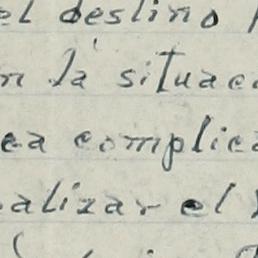 el destino
la situac
ea complica
alizar el